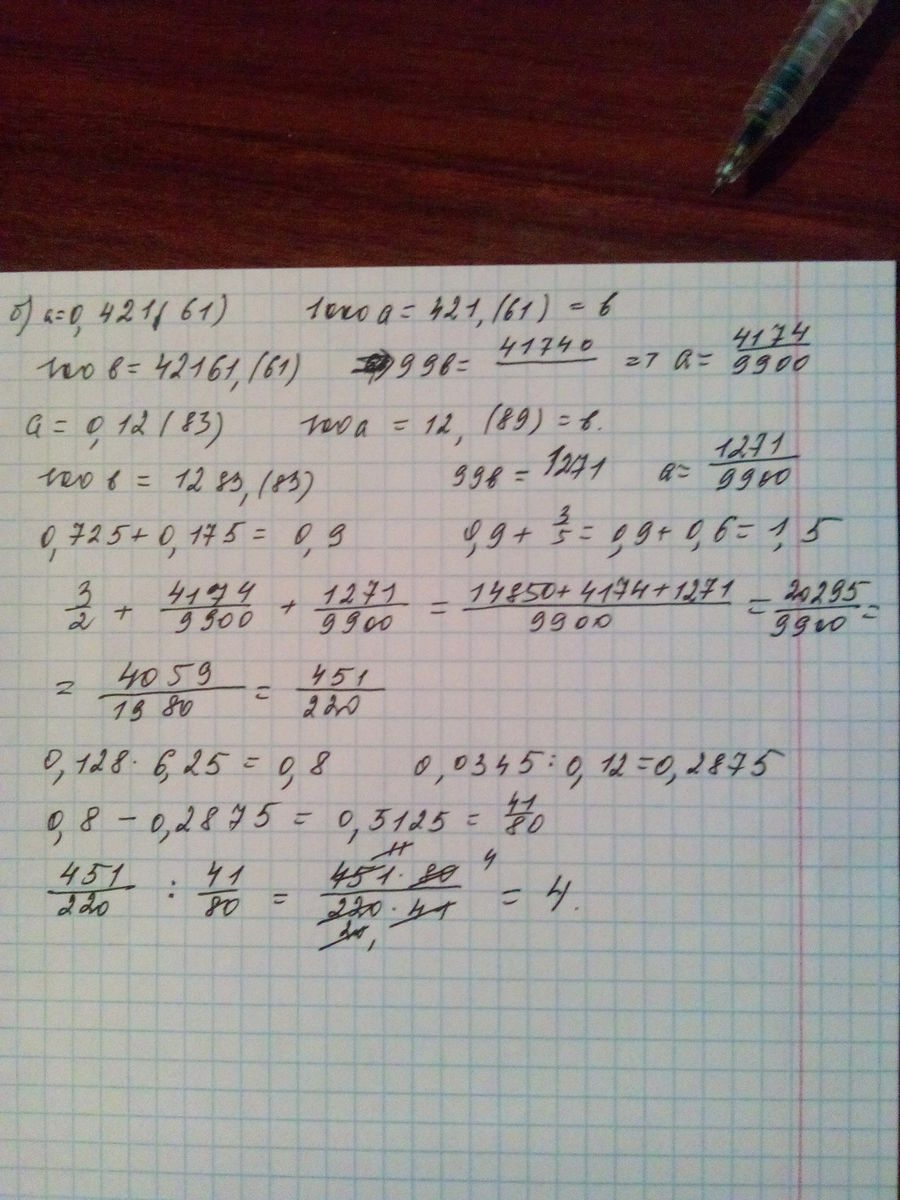 б) a=0,421(61) 1000a = 421,(61) = b
100b = 42161,(61) 99b = 41740 => a = 4174/9900
a = 0,12(83) 100a = 12,(89) = b.
100b = 1283,(83) 99b = 1271 a = 1271/9900
0,725 + 0,175 = 0,9 0,9 + 3/5 = 0,9 + 0,6 = 1,5
3/2 + 4174/9900 + 1271/9900 = 14850+4174+1271/9900 = 20295/9900 =
= 4059/1980 = 451/220
0,128 · 6,25 = 0,8 0,0345 : 0,12 = 0,2875
0,8 - 0,2875 = 0,5125 = 41/80
451/220 : 41/80 = 451 · 80/220 · 41 = 4.